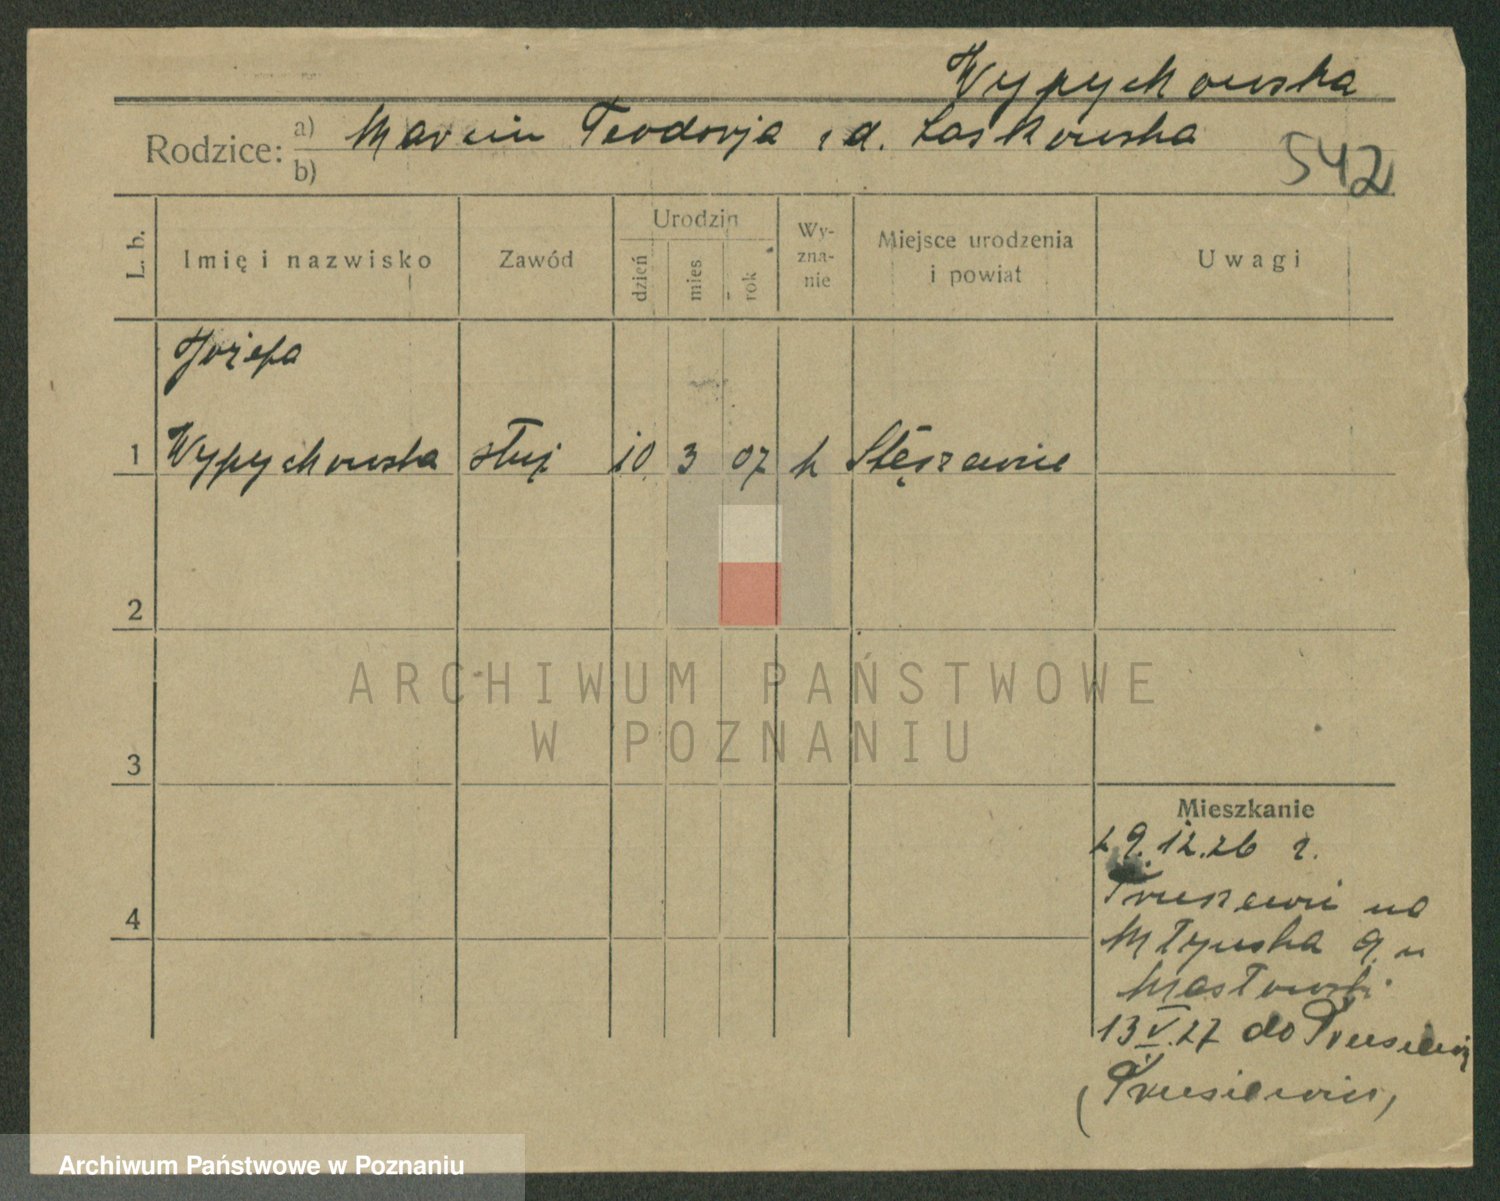 Wypychowska
Rodzice: a) Marcin Teodorja z d. Laskowska
b)
542
L. b.
Imię i nazwisko
Zawód
Urodzin
dzień
mies
rok
Wy-
zna-
nie
Miejsce urodzenia
i powiat
Uwagi
Józefa
1 Wypychowska służ 10 3 07 k Stęszewice
2
3
4
ARCHIWUM PAŃSTWOWE
W POZNANIU
Mieszkanie
29.12.26 r.
na
Młyńska 9 u
Masłowski
13 V.27 do Prusiewic
(Prusiewice)
Archiwum Państwowe w Poznaniu